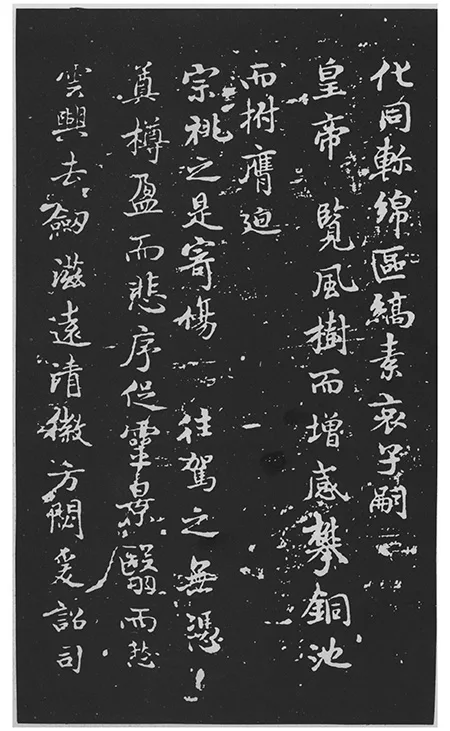 化同軫綿區縞素哀子嗣
皇帝覽風樹而增感攀銅池
而拊膺迫
宗祧之是寄愴往駕之無憑
奠樽盈而悲序促靈景翳而愁
雲興去劔滋遠清徽方閟爰詔司